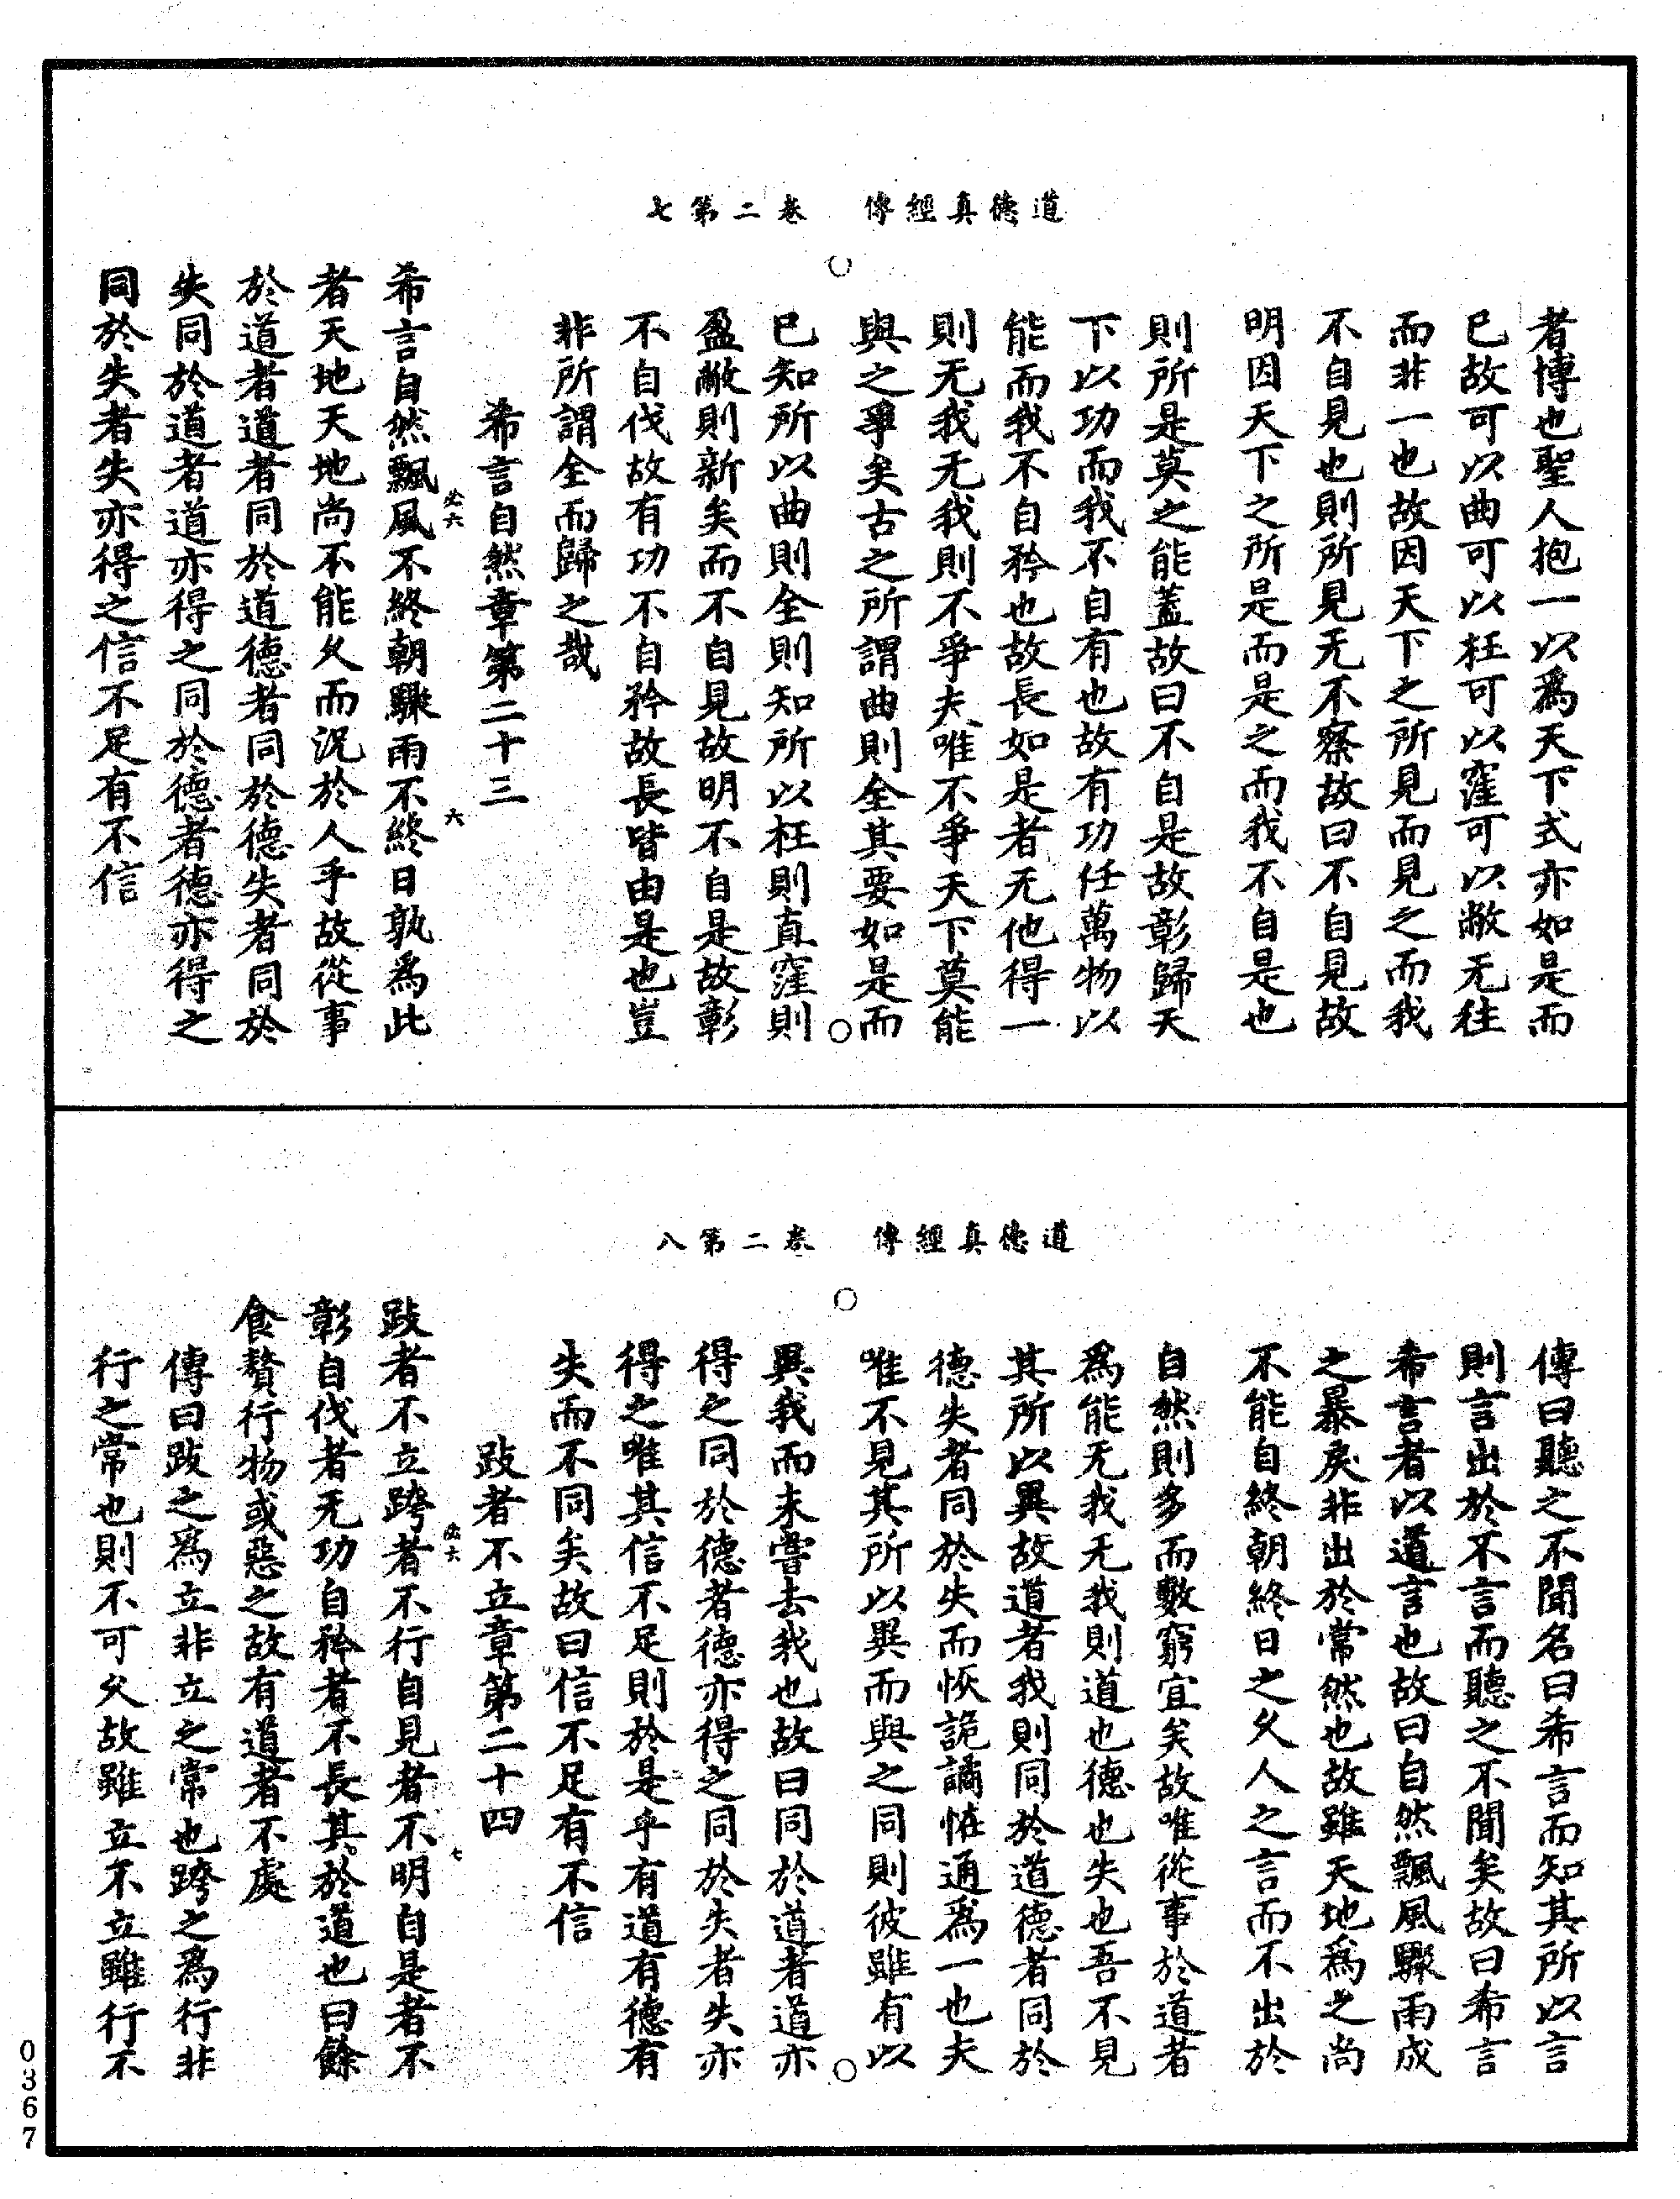 道德真經傳　卷二第七
者博也聖人抱一以爲天下式亦如是而
已故可以曲可以枉可以窪可以敝无往
而非一也故因天下之所見而見之而我
不自見也則所見无不察故曰不自見故
明因天下之所是而是之而我不自是也
則所是莫之能蓋故曰不自是故彰歸天
下以功而我不自有也故有功任萬物以
能而我不自矜也故長如是者无他得一
則无我无我則不爭夫唯不爭天下莫能
與之爭矣古之所謂曲則全其要如是而
已知所以曲則全則知所以枉則直窪則
盈敝則新矣而不自見故明不自是故彰
不自伐故有功不自矜故長皆由是也豈
非所謂全而歸之哉
希言自然章第二十三
必六　六
希言自然飄風不終朝驟雨不終日孰爲此
者天地天地尚不能久而況於人乎故從事
於道者道者同於道德者同於德失者同於
失同於道者道亦得之同於德者德亦得之
同於失者失亦得之信不足有不信
道德真經傳　卷二第八
傳曰聽之不聞名曰希言而知其所以言
則言出於不言而聽之不聞矣故曰希言
希言者以道言也故曰自然飄風驟雨成
之暴戾非出於常然也故雖天地爲之尚
不能自終朝終日之久人之言而不出於
自然則多而數窮宜矣故唯從事於道者
爲能无我无我則道也德也失也吾不見
其所以異故道者我則同於道德者同於
德失者同於失而恢詭譎恠通爲一也夫
唯不見其所以異而與之同則彼雖有以
異我而未嘗去我也故曰同於道者道亦
得之同於德者德亦得之同於失者失亦
得之唯其信不足則於是乎有道有德有
失而不同矣故曰信不足有不信
跂者不立章第二十四
必六　七
跂者不立跨者不行自見者不明自是者不
彰自伐者无功自矜者不長其於道也曰餘
食贅行物或惡之故有道者不處
傳曰跂之爲立非立之常也跨之爲行非
行之常也則不可久故雖立不立雖行不
0367